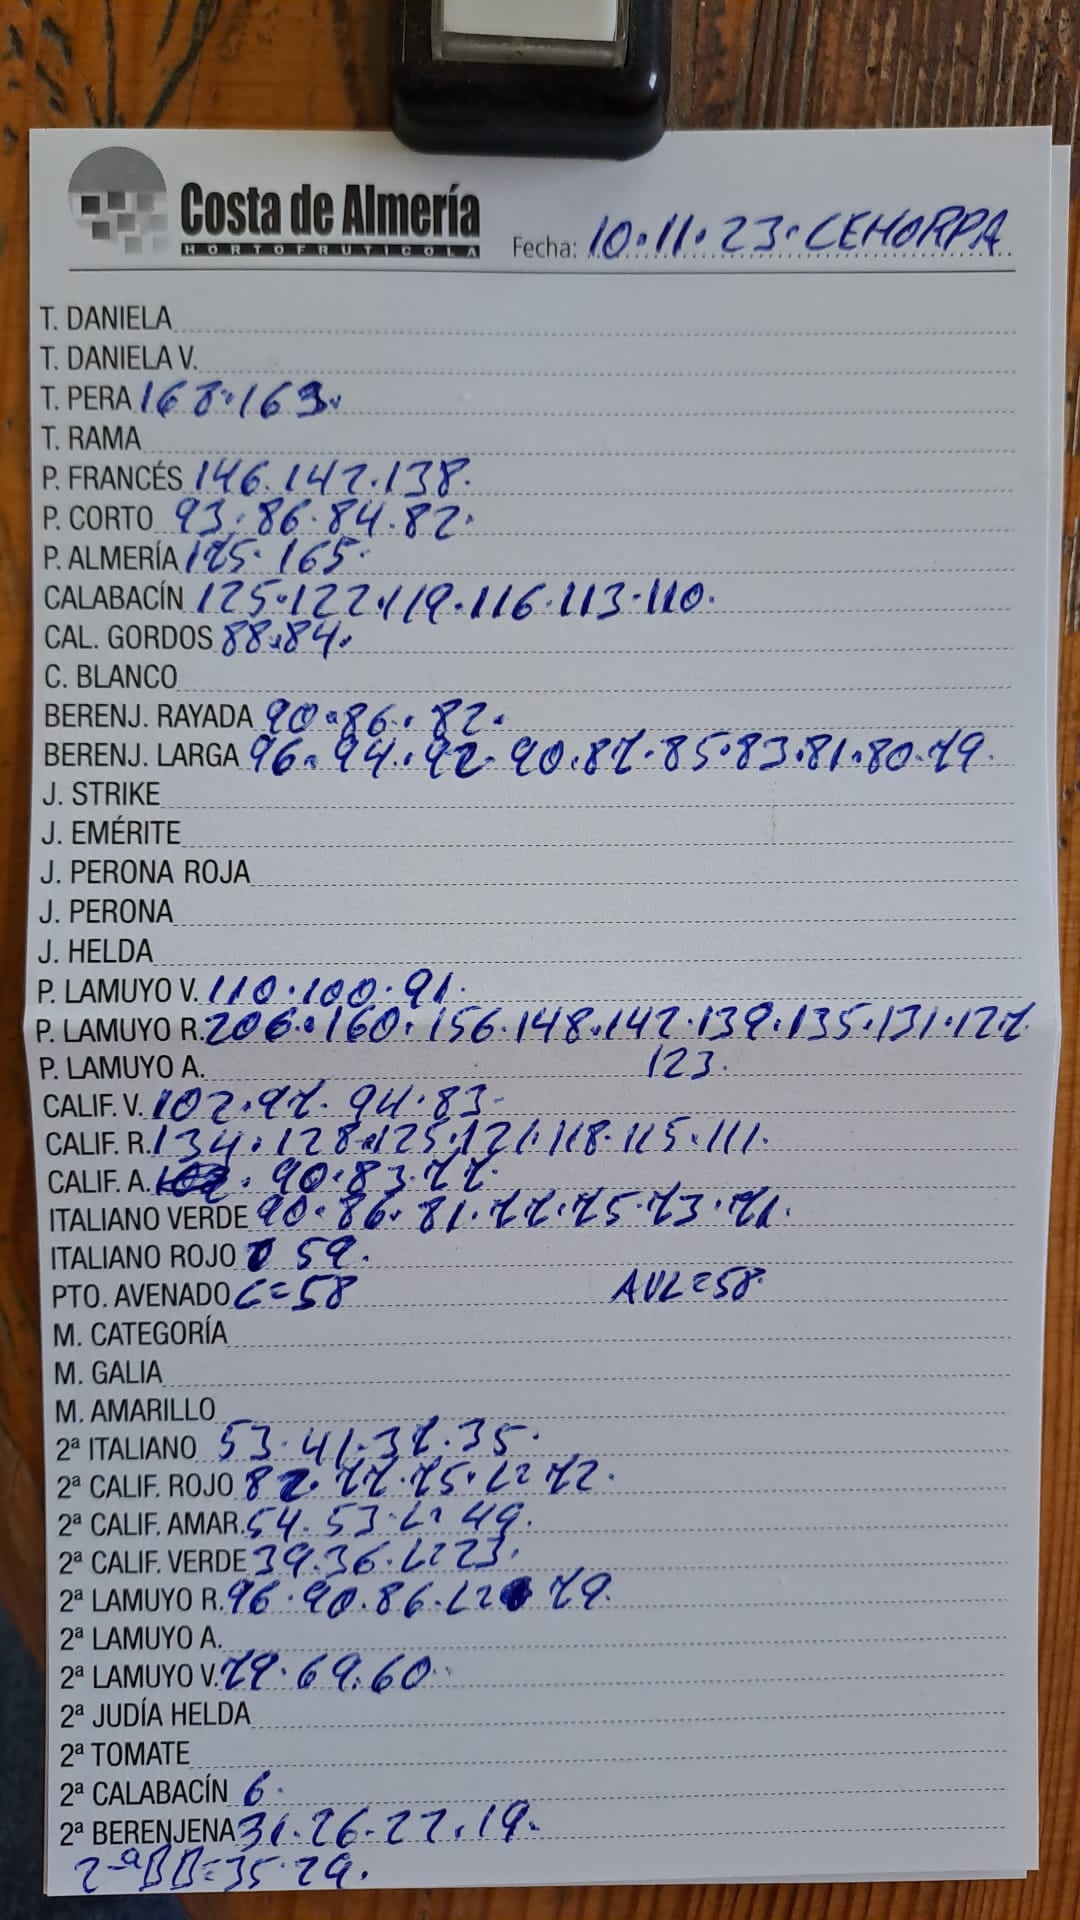 Costa de Almería
HORTOFRUTICOLA
Fecha: 10.11.23. CEHORPA
T. DANIELA
T. DANIELA V.
T. PERA 168.163.
T. RAMA
P. FRANCÉS 146.142.138.
P. CORTO 93.86.84.82.
P. ALMERÍA 175.165.
CALABACÍN 125.122.119.116.113.110.
CAL. GORDOS 88.84.
C. BLANCO
BERENJ. RAYADA 90.86.82.
BERENJ. LARGA 96.94.92.90.87.85.83.81.80.79.
J. STRIKE
J. EMÉRITE
J. PERONA ROJA
J. PERONA
J. HELDA
P. LAMUYO V. 110.100.91.
P. LAMUYO R. 206.160.156.148.142.139.135.131.127.
P. LAMUYO A. 123.
CALIF. V. 102.97.94.83.
CALIF. R. 134.128.125.121.118.115.111.
CALIF. A. 90.83.77.
ITALIANO VERDE 90.86.81.77.75.73.71.
ITALIANO ROJO 59.
PTO. AVENADO C=58 AVL=58.
M. CATEGORÍA
M. GALIA
M. AMARILLO
2ª ITALIANO 53.41.37.35.
2ª CALIF. ROJO 82.77.75.L=72.
2ª CALIF. AMAR. 54.53.L=49.
2ª CALIF. VERDE 39.36.L=23.
2ª LAMUYO R. 96.90.86.L=79.
2ª LAMUYO A.
2ª LAMUYO V. 79.69.60.
2ª JUDÍA HELDA
2ª TOMATE
2ª CALABACÍN 6.
2ª BERENJENA 31.26.22.19.
2ªBB=35.29.